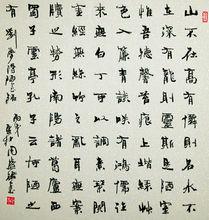 山不在高有仙則名水不
在深有龍則靈斯是陋室
惟吾德馨苔痕上階綠草
色入簾青談笑有鴻儒往
來無白丁可以調素琴閱
金經無絲竹之亂耳無案
牘之勞形南陽諸葛廬西
蜀子雲亭孔子云何陋之
有 劉禹錫陋室銘